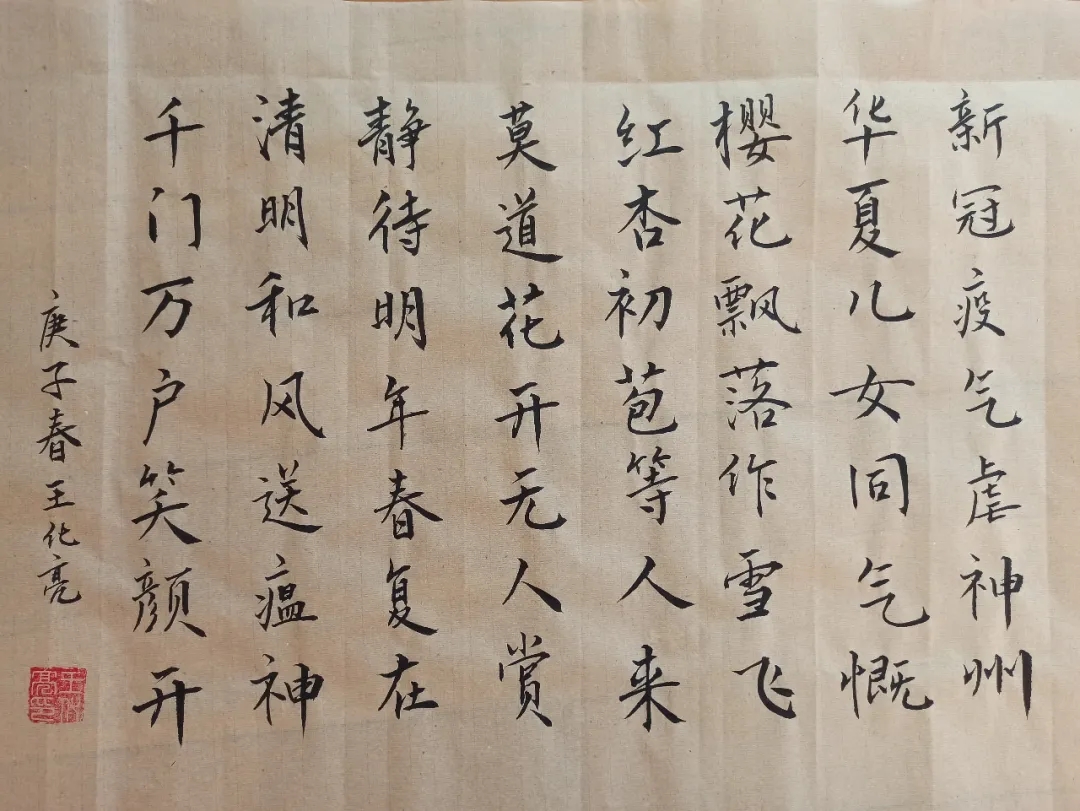 新冠疫气虐神州
华夏儿女同气慨
樱花飘落作雪飞
红杏初苞等人来
莫道花开无人赏
静待明年春复在
清明和风送瘟神
千门万户笑颜开
庚子春王化亮